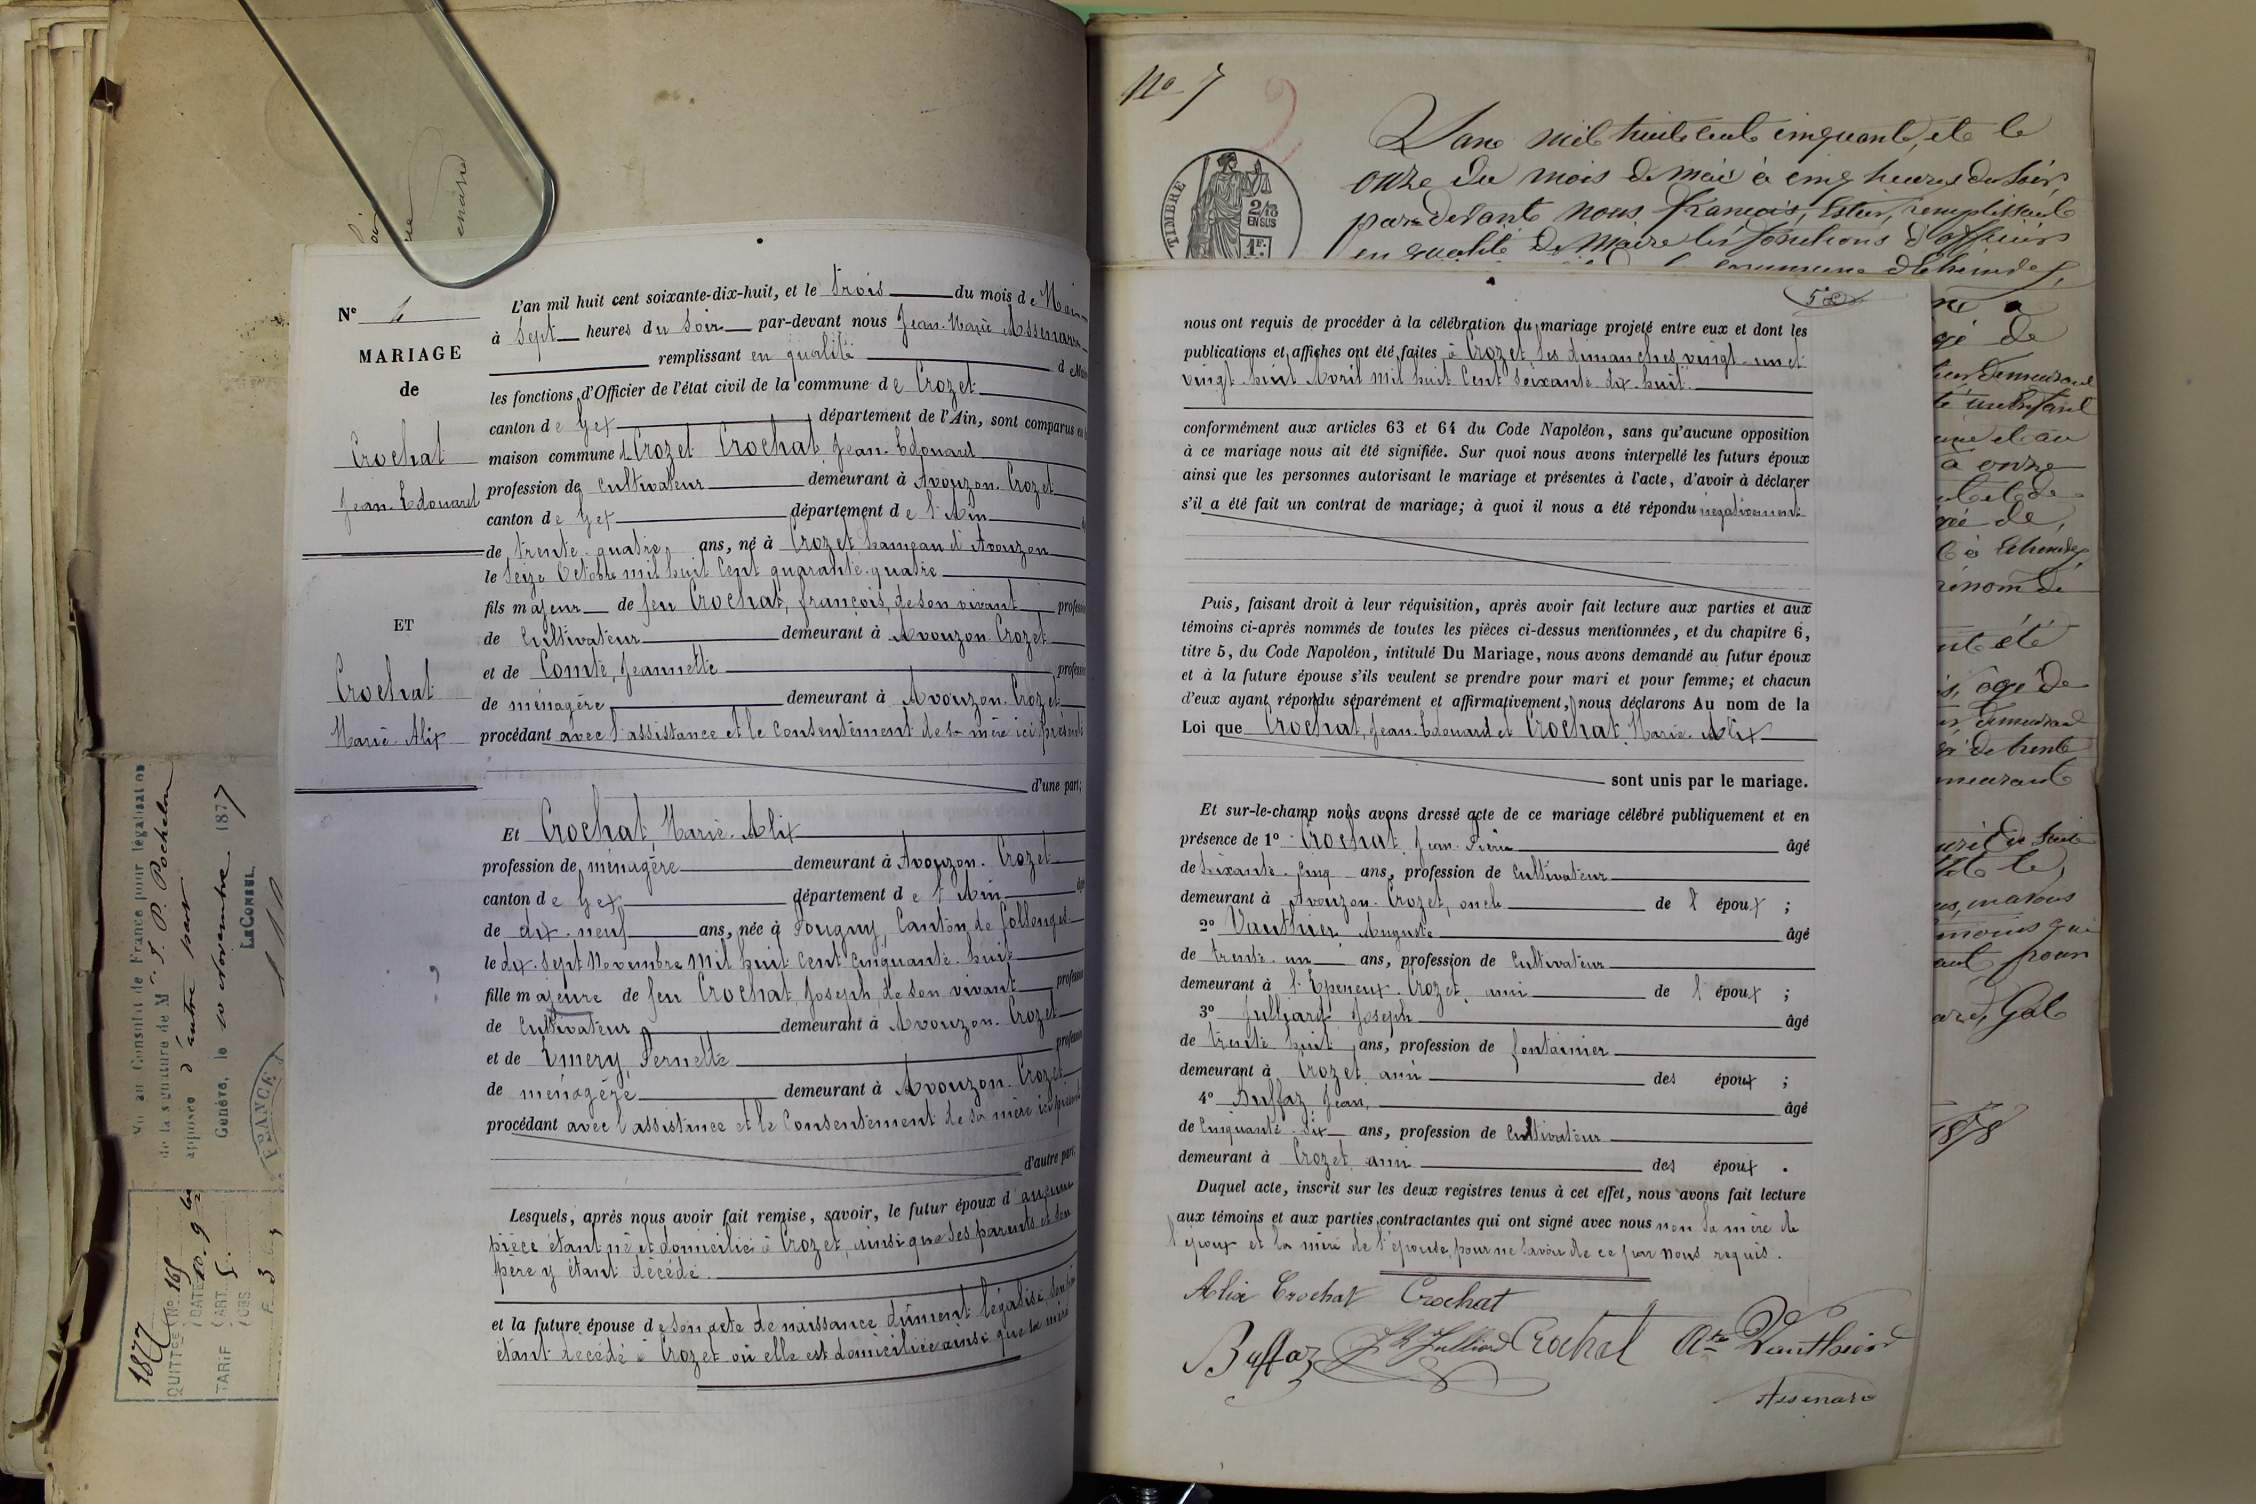 Nº 4
MARIAGE
de
Crochat
Jean-Edouard
ET
Crochat
Marie-Alix
L'an mil huit cent soixante-dix-huit, et le trois du mois de Mai
à Sept heures du Soir par-devant nous Jean-Marie Assenare
remplissant en qualité de
les fonctions d'Officier de l'état civil de la commune de Crozet
canton de Gex département de l'Ain, sont comparus en
maison commune d Crozet Crochat Jean-Edouard
profession de Cultivateur demeurant à Avouzon-Crozet
canton de Gex département de l'Ain
de trente-quatre ans, né à Crozet hameau d'Avouzon
le Seize Octobre mil huit Cent quarante-quatre
fils majeur de feu Crochat, françois, de son vivant profession
de Cultivateur demeurant à Avouzon-Crozet
et de Comte, Jeannette profession
de ménagère demeurant à Avouzon-Crozet
procédant avec l'assistance et le Consentement de sa mère ici présente
d'une part;
Et Crochat, Marie-Alix
profession de ménagère demeurant à Avouzon-Crozet
canton de Gex département de l'Ain
de dix-neuf ans, née à Pougny, Canton de Collonges
le dix-sept Novembre mil huit cent cinquante-huit
fille majeure de feu Crochat, Joseph, de son vivant profession
de Cultivateur demeurant à Avouzon-Crozet
et de Emery, Pernette profession
de ménagère demeurant à Avouzon-Crozet
procédant avec l'assistance et le Consentement de sa mère ici présente
d'autre part.
Lesquels, après nous avoir fait remise, savoir, le futur époux d'aucune
pièce étant né et domicilié à Crozet, ainsi que ses parents et son
père y étant décédé.
et la future épouse de son acte de naissance dûment légalisé, son père
étant décédé à Crozet où elle est domiciliée ainsi que sa mère
Vu au Consulat de France pour légalisation
de la signature de M J. P. Rochelon
apposée d'autre part
Genève, le 10 Novembre 1877
LE CONSUL,
FRANCE
1877
QUITTce No. 165
DATE 10. 9
TARIF ART. 5.
Nº 7
TIMBRE
2/10
EN SUS
1F.
L'an mil huit cent cinquante, et le
onze du mois de mai à cinq heures du Soir,
par-devant nous françois, Estier, remplissant
en qualité de Maire les fonctions d'officier
commune d'Echenevex,
50
nous ont requis de procéder à la célébration du mariage projeté entre eux et dont les
publications et affiches ont été faites à Crozet les dimanches vingt-un et
vingt-huit Avril mil huit Cent Soixante-dix-huit.
conformément aux articles 63 et 64 du Code Napoléon, sans qu'aucune opposition
à ce mariage nous ait été signifiée. Sur quoi nous avons interpellé les futurs époux
ainsi que les personnes autorisant le mariage et présentes à l'acte, d'avoir à déclarer
s'il a été fait un contrat de mariage; à quoi il nous a été répondu négativement
Puis, faisant droit à leur réquisition, après avoir fait lecture aux parties et aux
témoins ci-après nommés de toutes les pièces ci-dessus mentionnées, et du chapitre 6,
titre 5, du Code Napoléon, intitulé Du Mariage, nous avons demandé au futur époux
et à la future épouse s'ils veulent se prendre pour mari et pour femme; et chacun
d'eux ayant répondu séparément et affirmativement, nous déclarons Au nom de la
Loi que Crochat, Jean-Edouard et Crochat, Marie-Alix
sont unis par le mariage.
Et sur-le-champ nous avons dressé acte de ce mariage célébré publiquement et en
présence de 1º Crochat, Jean-Pierre âgé
de Soixante-cinq ans, profession de Cultivateur
demeurant à Avouzon-Crozet, oncle de l'époux ;
2º Vauthier Auguste âgé
de trente-un ans, profession de Cultivateur
demeurant à l'Epeneux-Crozet, ami de l'époux ;
3º Julliard Joseph âgé
de trente-huit ans, profession de fontainier
demeurant à Crozet, ami des époux ;
4º Buffaz, Jean, âgé
de Cinquante-Six ans, profession de Cultivateur
demeurant à Crozet, ami des époux .
Duquel acte, inscrit sur les deux registres tenus à cet effet, nous avons fait lecture
aux témoins et aux parties contractantes qui ont signé avec nous non la mère de
l'époux et la mère de l'épouse, pour ne savoir de ce par nous requis.
Alix Crochat Crochat
Buffaz Jh Julliard Crochat Ate Vauthier
Assenare
gé de
demeurant
à onze
rénom de
été
âgé de
demeurant
de trente
pour
1878